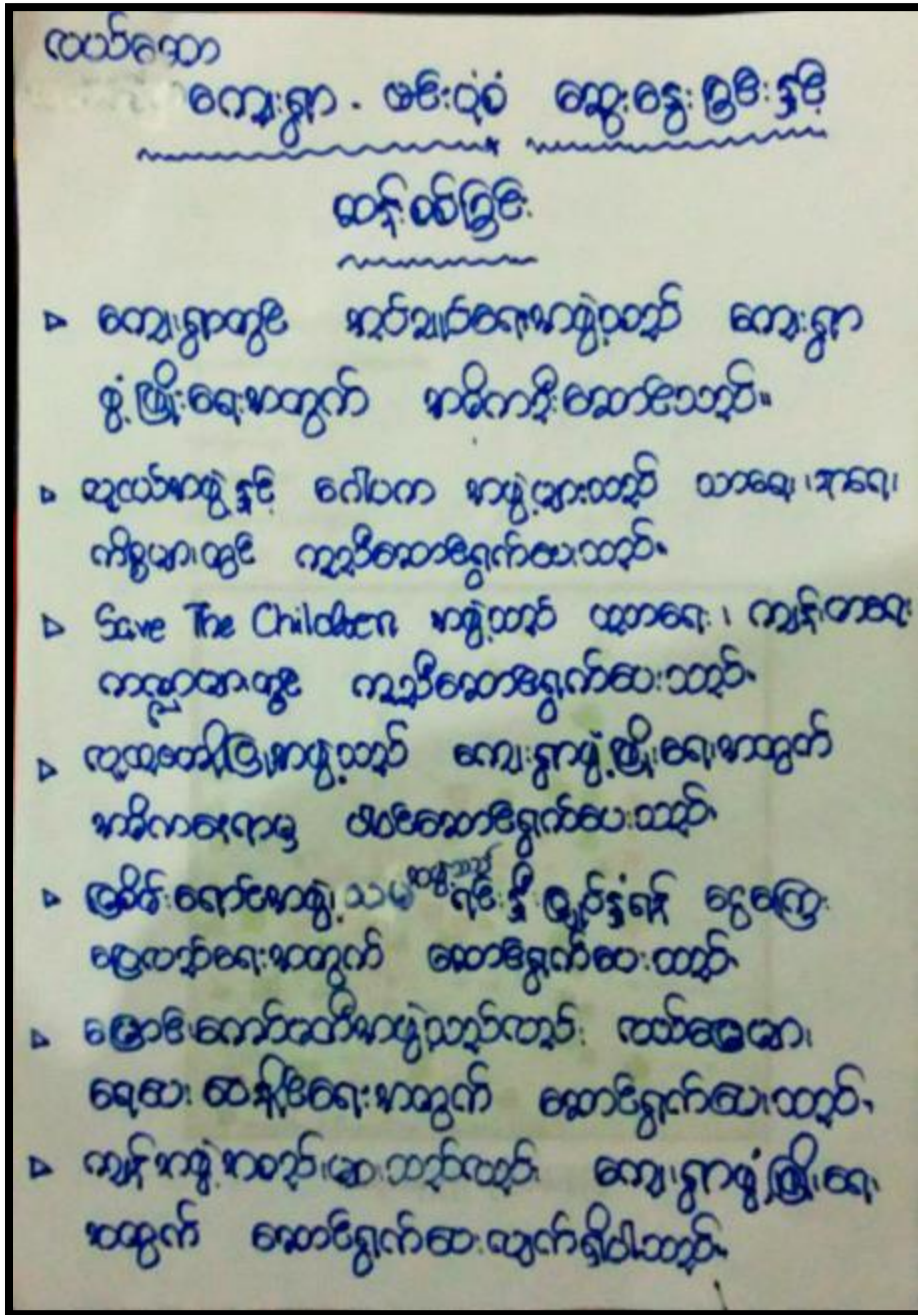 လယ်တော
ကျေးရွာ - ဗင်းပုံစံ ဆွေးနွေးခြင်းနှင့်
ဆန်းစစ်ခြင်း
▷ ကျေးရွာတွင် အုပ်ချုပ်ရေးအဖွဲ့သည် ကျေးရွာ
ဖွံ့ဖြိုးရေးအတွက် အဓိကဦးဆောင်သည်။
▷ လူငယ်အဖွဲ့နှင့် ဂေါပက အဖွဲ့များသည် သာရေး၊ နာရေး၊
ကိစ္စများတွင် ကူညီဆောင်ရွက်ပေးသည်။
▷ Save The Children အဖွဲ့သည် ပညာရေး၊ ကျန်းမာရေး
ကဏ္ဍများတွင် ကူညီဆောင်ရွက်ပေးသည်။
▷ လူထုအကျိုးပြုအဖွဲ့သည် ကျေးရွာဖွံ့ဖြိုးရေးအတွက်
အဓိကနေရာမှ ပါဝင်ဆောင်ရွက်ပေးသည်။
▷ မြစိမ်းရောင်အဖွဲ့၊ သမအဖွဲ့သည် ရင်းနှီးမြှုပ်နှံရန် ငွေကြေး
ချေးလည်ရေးအတွက် ဆောင်ရွက်ပေးသည်။
▷ မြောင်းကော်မတီအဖွဲ့သည်လည်း လယ်မြေများ
ရေပေး ဝေနိုင်ရေးအတွက် ဆောင်ရွက်ပေးသည်။
▷ ကျန်အဖွဲ့အစည်းများသည်လည်း ကျေးရွာဖွံ့ဖြိုးရေး
အတွက် ဆောင်ရွက်ပေးလျက်ရှိပါသည်။